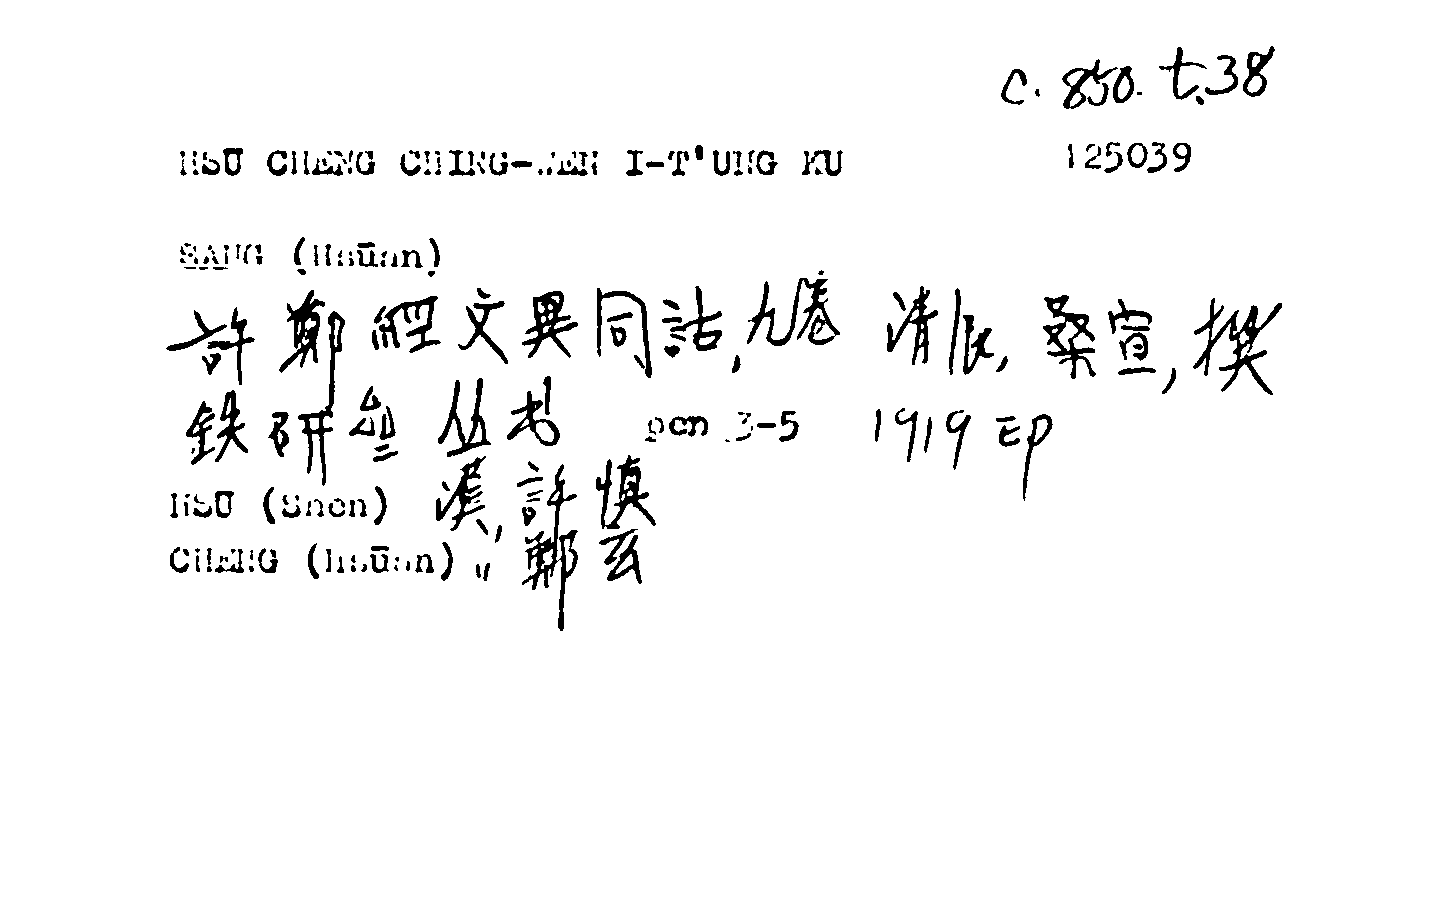 C. 850. t.38
HSŪ CHENG CHING-WEN I-T'UNG KU 125039
SANG (Hsūan)
許鄭經文異同詁,九卷 清 民, 桑宣,撰
鉄研 丛书 pen 3-5 1919 印
HSŪ (Shen) 漢,許慎
CHENG (hsūan) " 鄭玄